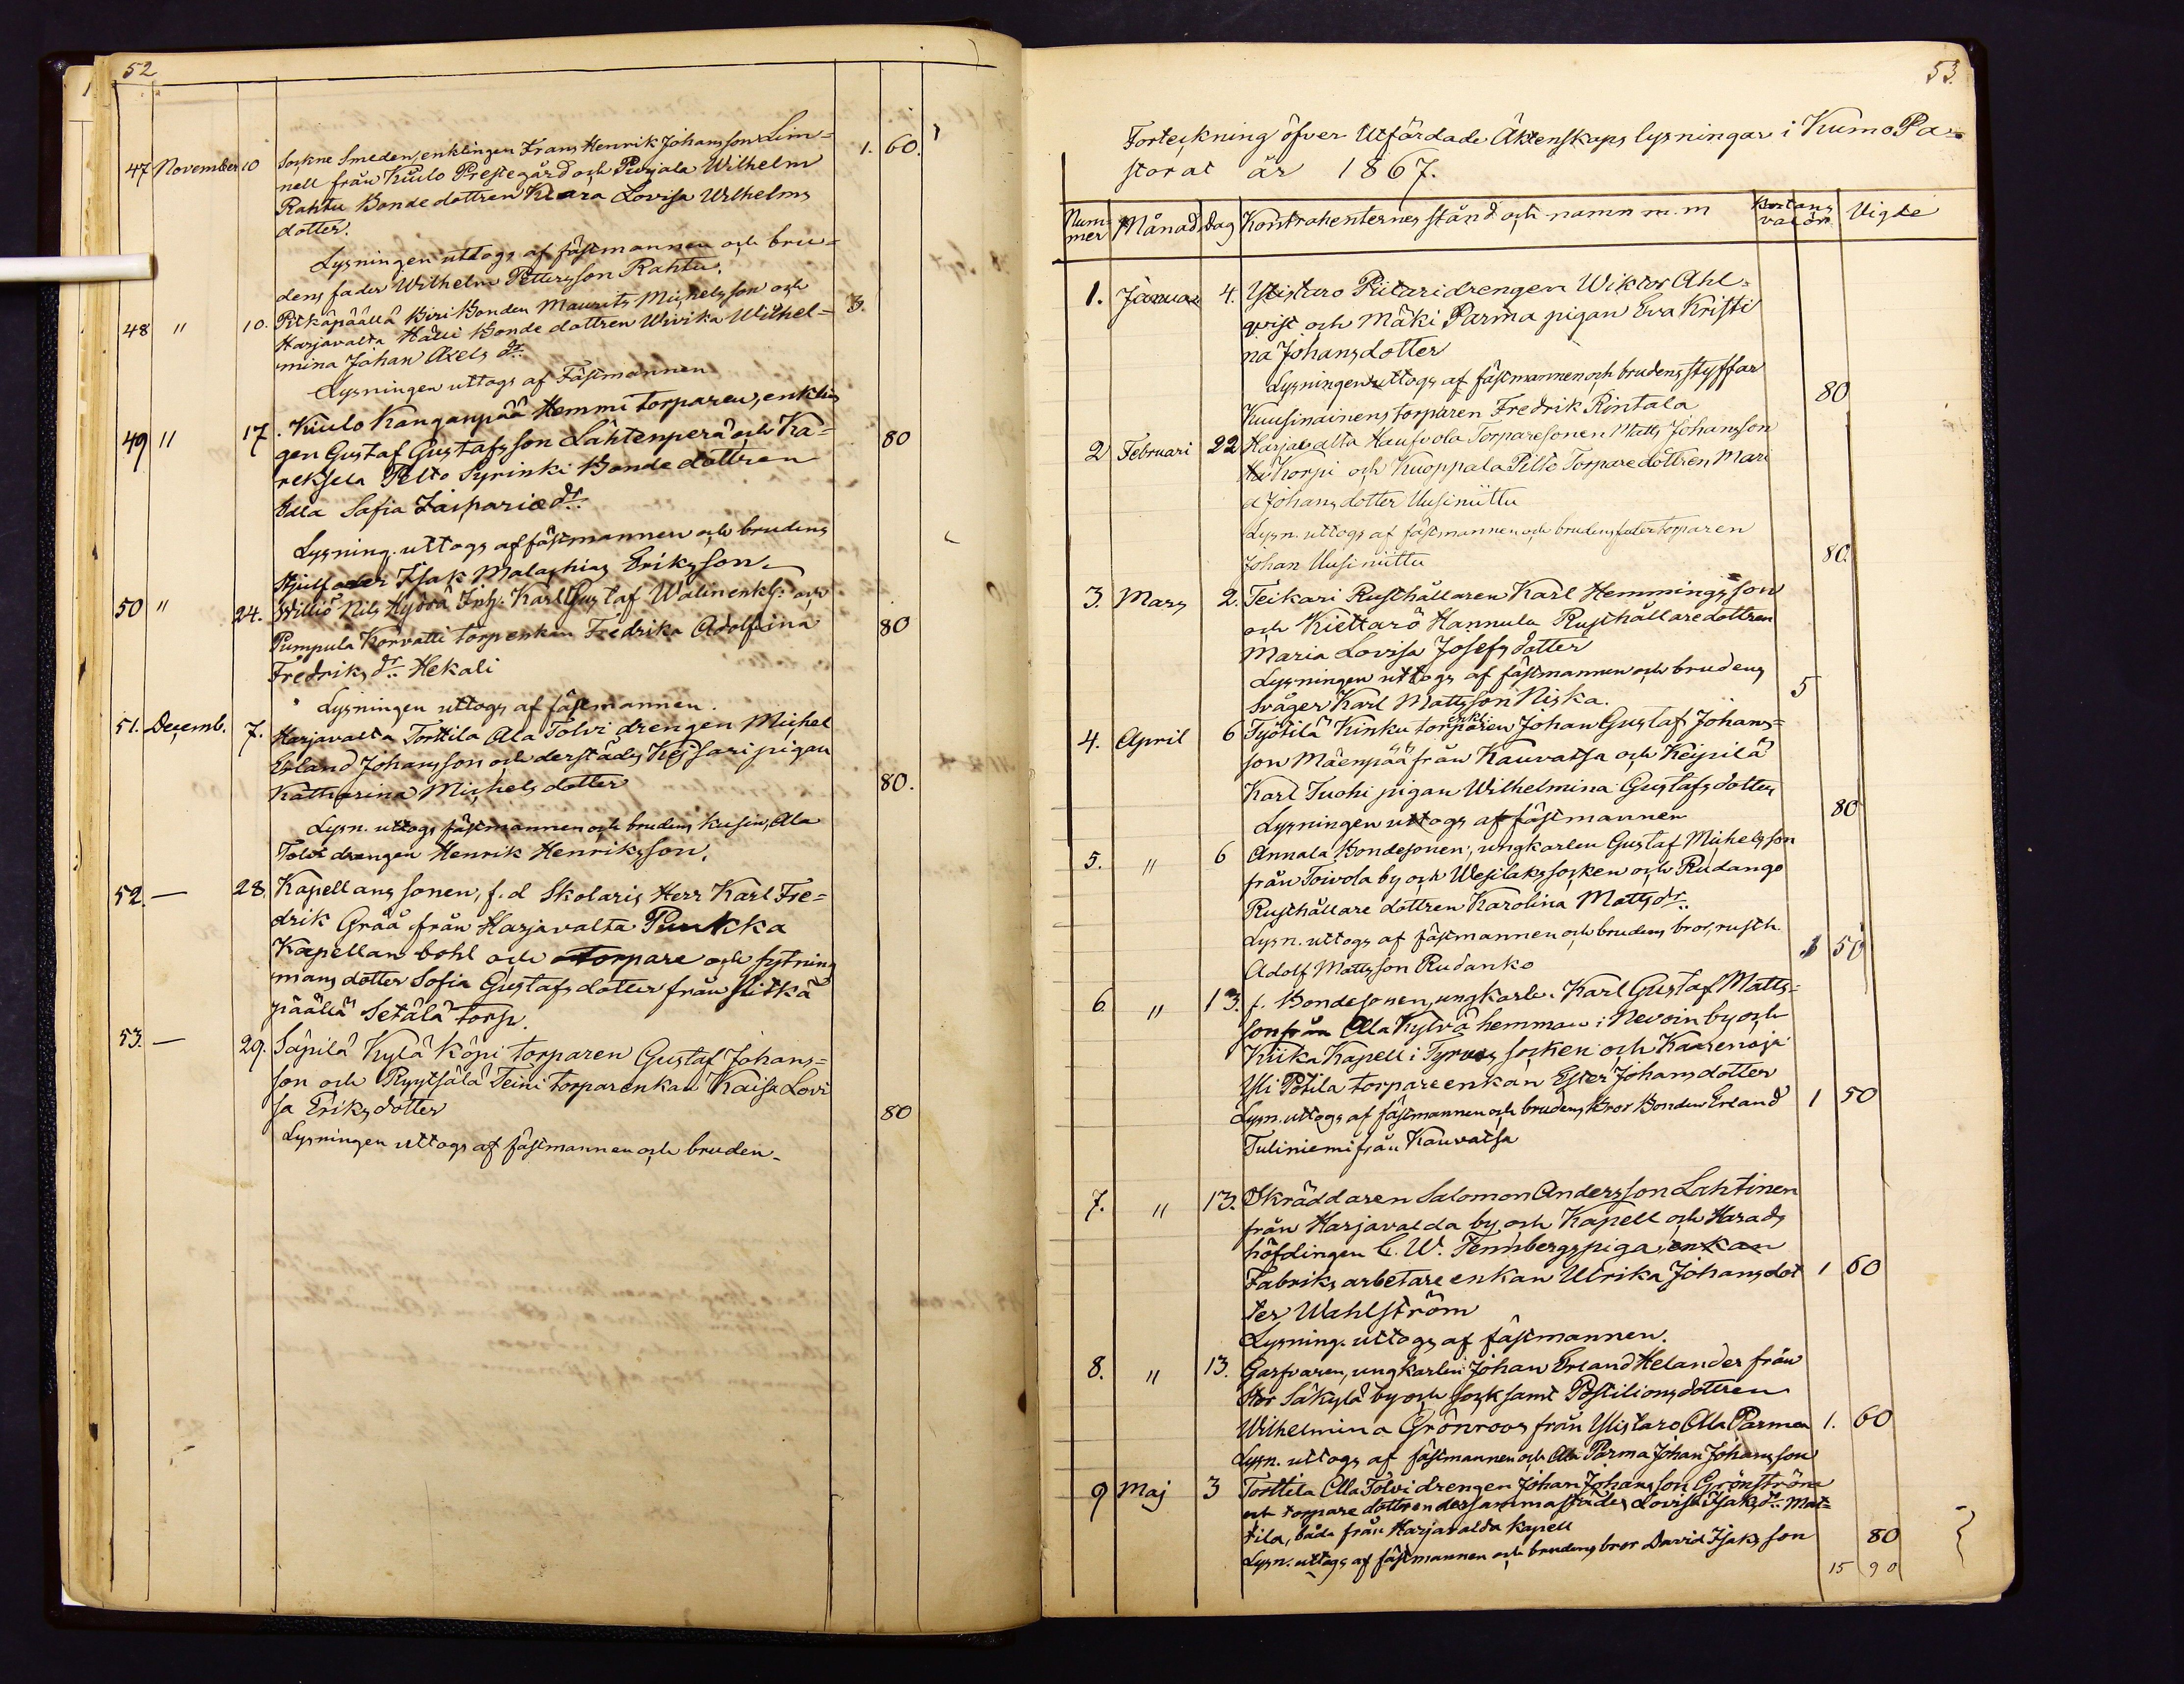 52
47 November 10 Sockne Smeden, enklingen Frans Henrik Johansson Lin= 1. 60.
nell från Kiulo Prestegård och Purjala Wilhelm
Rahtu Bonde dottren Klara Lovisa Wilhelms
dotter.
Lysningen uttogs af fästmannen och bru=
dens fader Wilhelm Pettersson Rahtu.
48 " 10. Pitkäpäällä Kiri Bonden Maurits Michelsson och 3.
Harjavalta Hälli Bonde dottren Wivika Wilhel=
mina Johan Axels dr.
Lysningen uttogs af Fästmannen
49 " 17. Kiulo Kanganpää Hemmi torparen, enklin
gen Gustaf Gustafsson Lähtenperä och Ka= 80
reksela Pelto Syrinki Bonde dottren
Ulla Safia Kasparie dr.
Lysning. uttogs af fästmannen och brudens
Isak Malachias Eriksson.
50 " 24. Willio Nils Hydrä Inh. Karl Gustaf Walin enkl: och
Pumpula Korvatti torp enkan Fredrika Adolfina 80
Fredriks dr. Hekali
Lysningen uttogs af fästmannen.
51. Decemb. 7. Harjavalta Torttila Ala Tolvi drengen Michel
Erland Johansson och derstädes Kejsari pigan
Katharina Michels dotter 80.
Lysn. uttogs fästmannen och brudens kusin, Ala
Tolvi drengen Henrik Henriksson.
52. — 28. Kapellans sonen, f.d Skolaris Herr Karl Fre=
drik Gråå från Harjavalta Pirkka
Kapellans bohl och torpare och sytning
mans dotter Sofia Gustafs dotter från Pitkä
päällä Setälä torp.
53. — 29. Säpilä Kylä Köpi torparen Gustaf Johans=
son och Ryytsälä Teini torparenkan Kaisa Lovi
sa Eriks dotter 80
Lysningen uttogs af fästmannen och bruden.
53.
Forteckning öfver Utfärdade Äktenskaps lysningar i Kumo Pa=
storat år 1867.
Num=mer Månad Dag Kontrahenternes stånd och namn m.m Vigde
1. Januar 4. Ylistaro Piitari drengen Wiktor Ahl=
qvist och Mäki Parma pigan Eva Kristi
na Johans dotter
Lysningen uttogs af fästmannen och brudens styffar
Kuusinainens torparen Fredrik Rintala 80
2 Februari 22 Harjavalta Hausvola Torparesonen Matts Johansson
Häkorpi och Kuoppala Pilto Torparedottren Mari
a Johans dotter Uusiniittu
Lysn. uttogs af fästmannen och brudens fader torparen
Johan Uusiniittu 80.
3. Mars 2. Teikari Rusthållaren Karl Hemmingsson
och Kiettarö Hannula Rusthållaredottren
Maria Lovisa Josefs dotter
Lysningen uttogs af fästmannen och brudens
Svåger Karl Mattsson Niska. 5
4. April 6 Työtilä Kinku torparen enkl. Johan Gustaf Johans=
son Mäenpää från Kauvatsa och Keipilä
Karl Tuohi pigan Wilhelmina Gustafs dotter
Lysningen uttogs af fästmannen 80
5. " 6 Annala Bondesonen, ungkarlen Gustaf Michelsson
från Toivola by och Wesilaks socken och Rudango
Rusthållare dottren Karolina Matts dr.
Lysn. uttogs af fästmannen och brudens bror, rusth.
Adolf Mattsson Rudanko 1 50
6. " 13. f. Bondesonen, ungkarln. Karl Gustaf Matts=
son från Alla Kylvä hemman i Nevoin by och
Kiika Kapell i Tyrvis socken och Kaarenoja
Yli Potila torpareenkan Ester Johans dotter
Lysn. uttogs af fästmannen och brudens Bror Bonden Erland 1 50
Tuliniemi från Kauvatsa
7. " 13. Skräddaren Salomon Andersson Lahtinen
från Harjavalda by och Kapell och Härads
höfdingen C. W. Tennbergs piga, enkan
Fabriks arbetare enkan Ulrika Johansdot 1 60
ter Wahlström
Lysning. uttogs af fästmannen.
8. " 13. Garfvaren, ungkarlen Johan Erland Helander från
Stor Säkylä by och sock samt Postilions dottren
Wilhelmina Grönroos från Ylistaro Alla Parma 1. 60
Lysn. uttogs af fästmannen och Alla Parma Johan Johansson
9 Maj 3 Torttila Alla Tolvi drengen Johan Johansson Grönström
och torpare dottren dersammastädes Lovisa Isaks dr. Mat=
tila, båda från Harjavalda Kapell
Lysn. uttogs af fästmannen och brudens bror David Isaksson 80
15 90